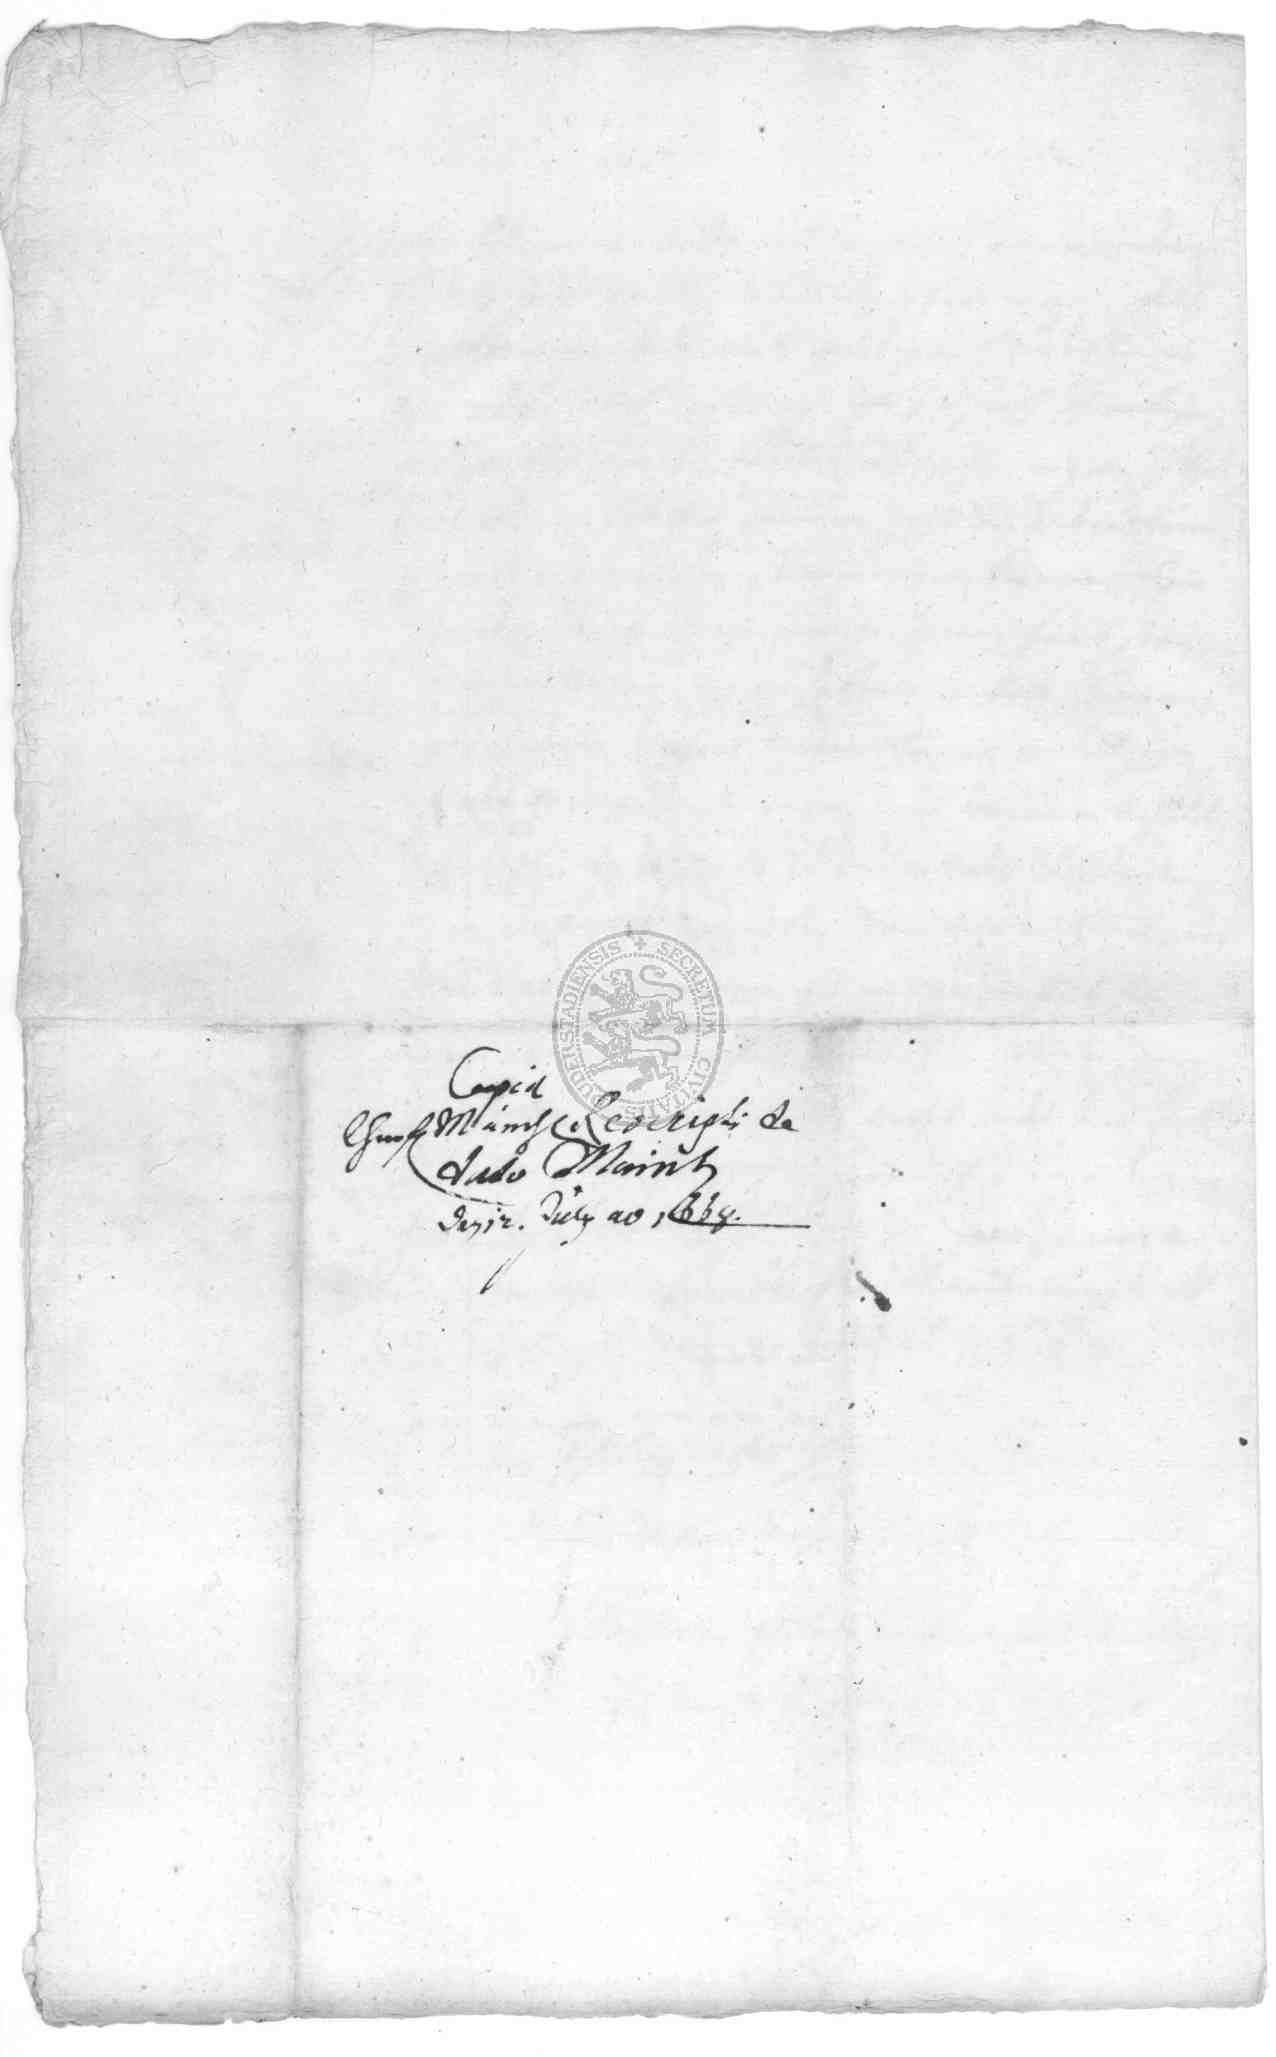 SECRETUM CIVITATIS DUDERSTADIENSIS
Copia
Churf Mäintz Rescripti de
dato Maintz
den 12. July ao 1668.